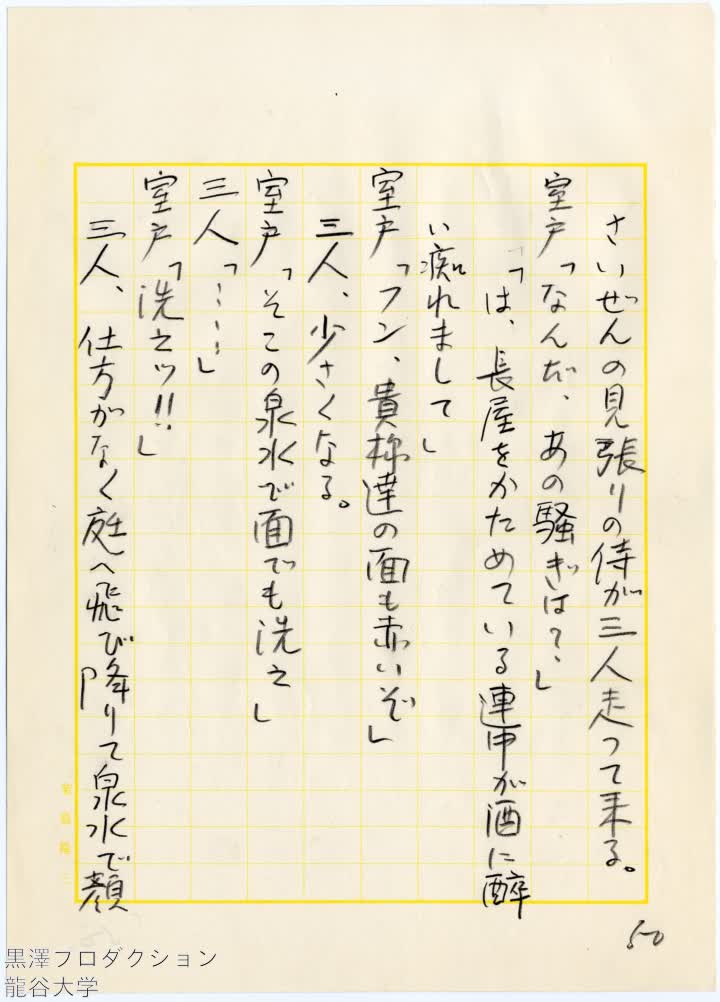 さいぜんの見張りの侍が三人走って来る。
室戸「なんだ、あの騒ぎは？」
「は、長屋をかためている連中が酒に酔
い痴れまして」
室戸「フン、貴様達の面も赤いぞ」
三人、少さくなる。
室戸「そこの泉水で面でも洗え」
三人「……」
室戸「洗えッ!!」
三人、仕方がなく庭へ飛び降りて泉水で顔
50
黒澤プロダクション
龍谷大学